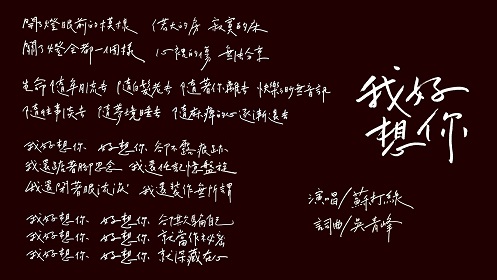 開了燈 眼前的模樣 偌大的房 寂寞的床
關了燈 全都一個樣 心裡的傷 無法分享
生命 隨年月流去 隨白髮老去 隨著你離去 快樂渺無音訊
隨往事淡去 隨夢境睡去 隨麻痺的心逐漸遠去
我好想你 好想你 卻不露痕跡
我還踮著腳思念 我還任記憶盤旋
我還閉著眼流淚 我還裝作無所謂
我好想你 好想你 卻欺騙自己
我好想你 好想你 就當作秘密
我好想你 好想你 就深藏在心
我好
想你
演唱/蘇打綠
詞曲/吳青峰